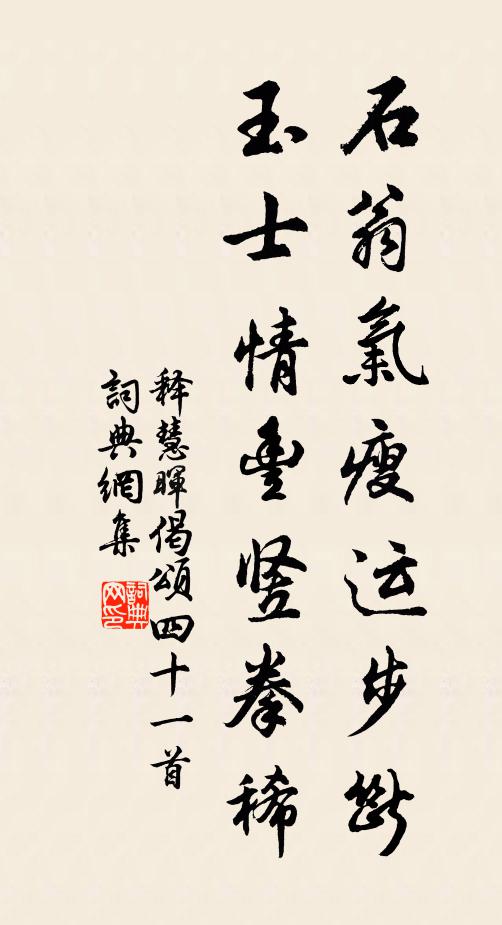 石翁氣瘦运步斷
玉士情豊竖拳稀
释慧暉偈頌四十一首
詞典網集
詞典
网印